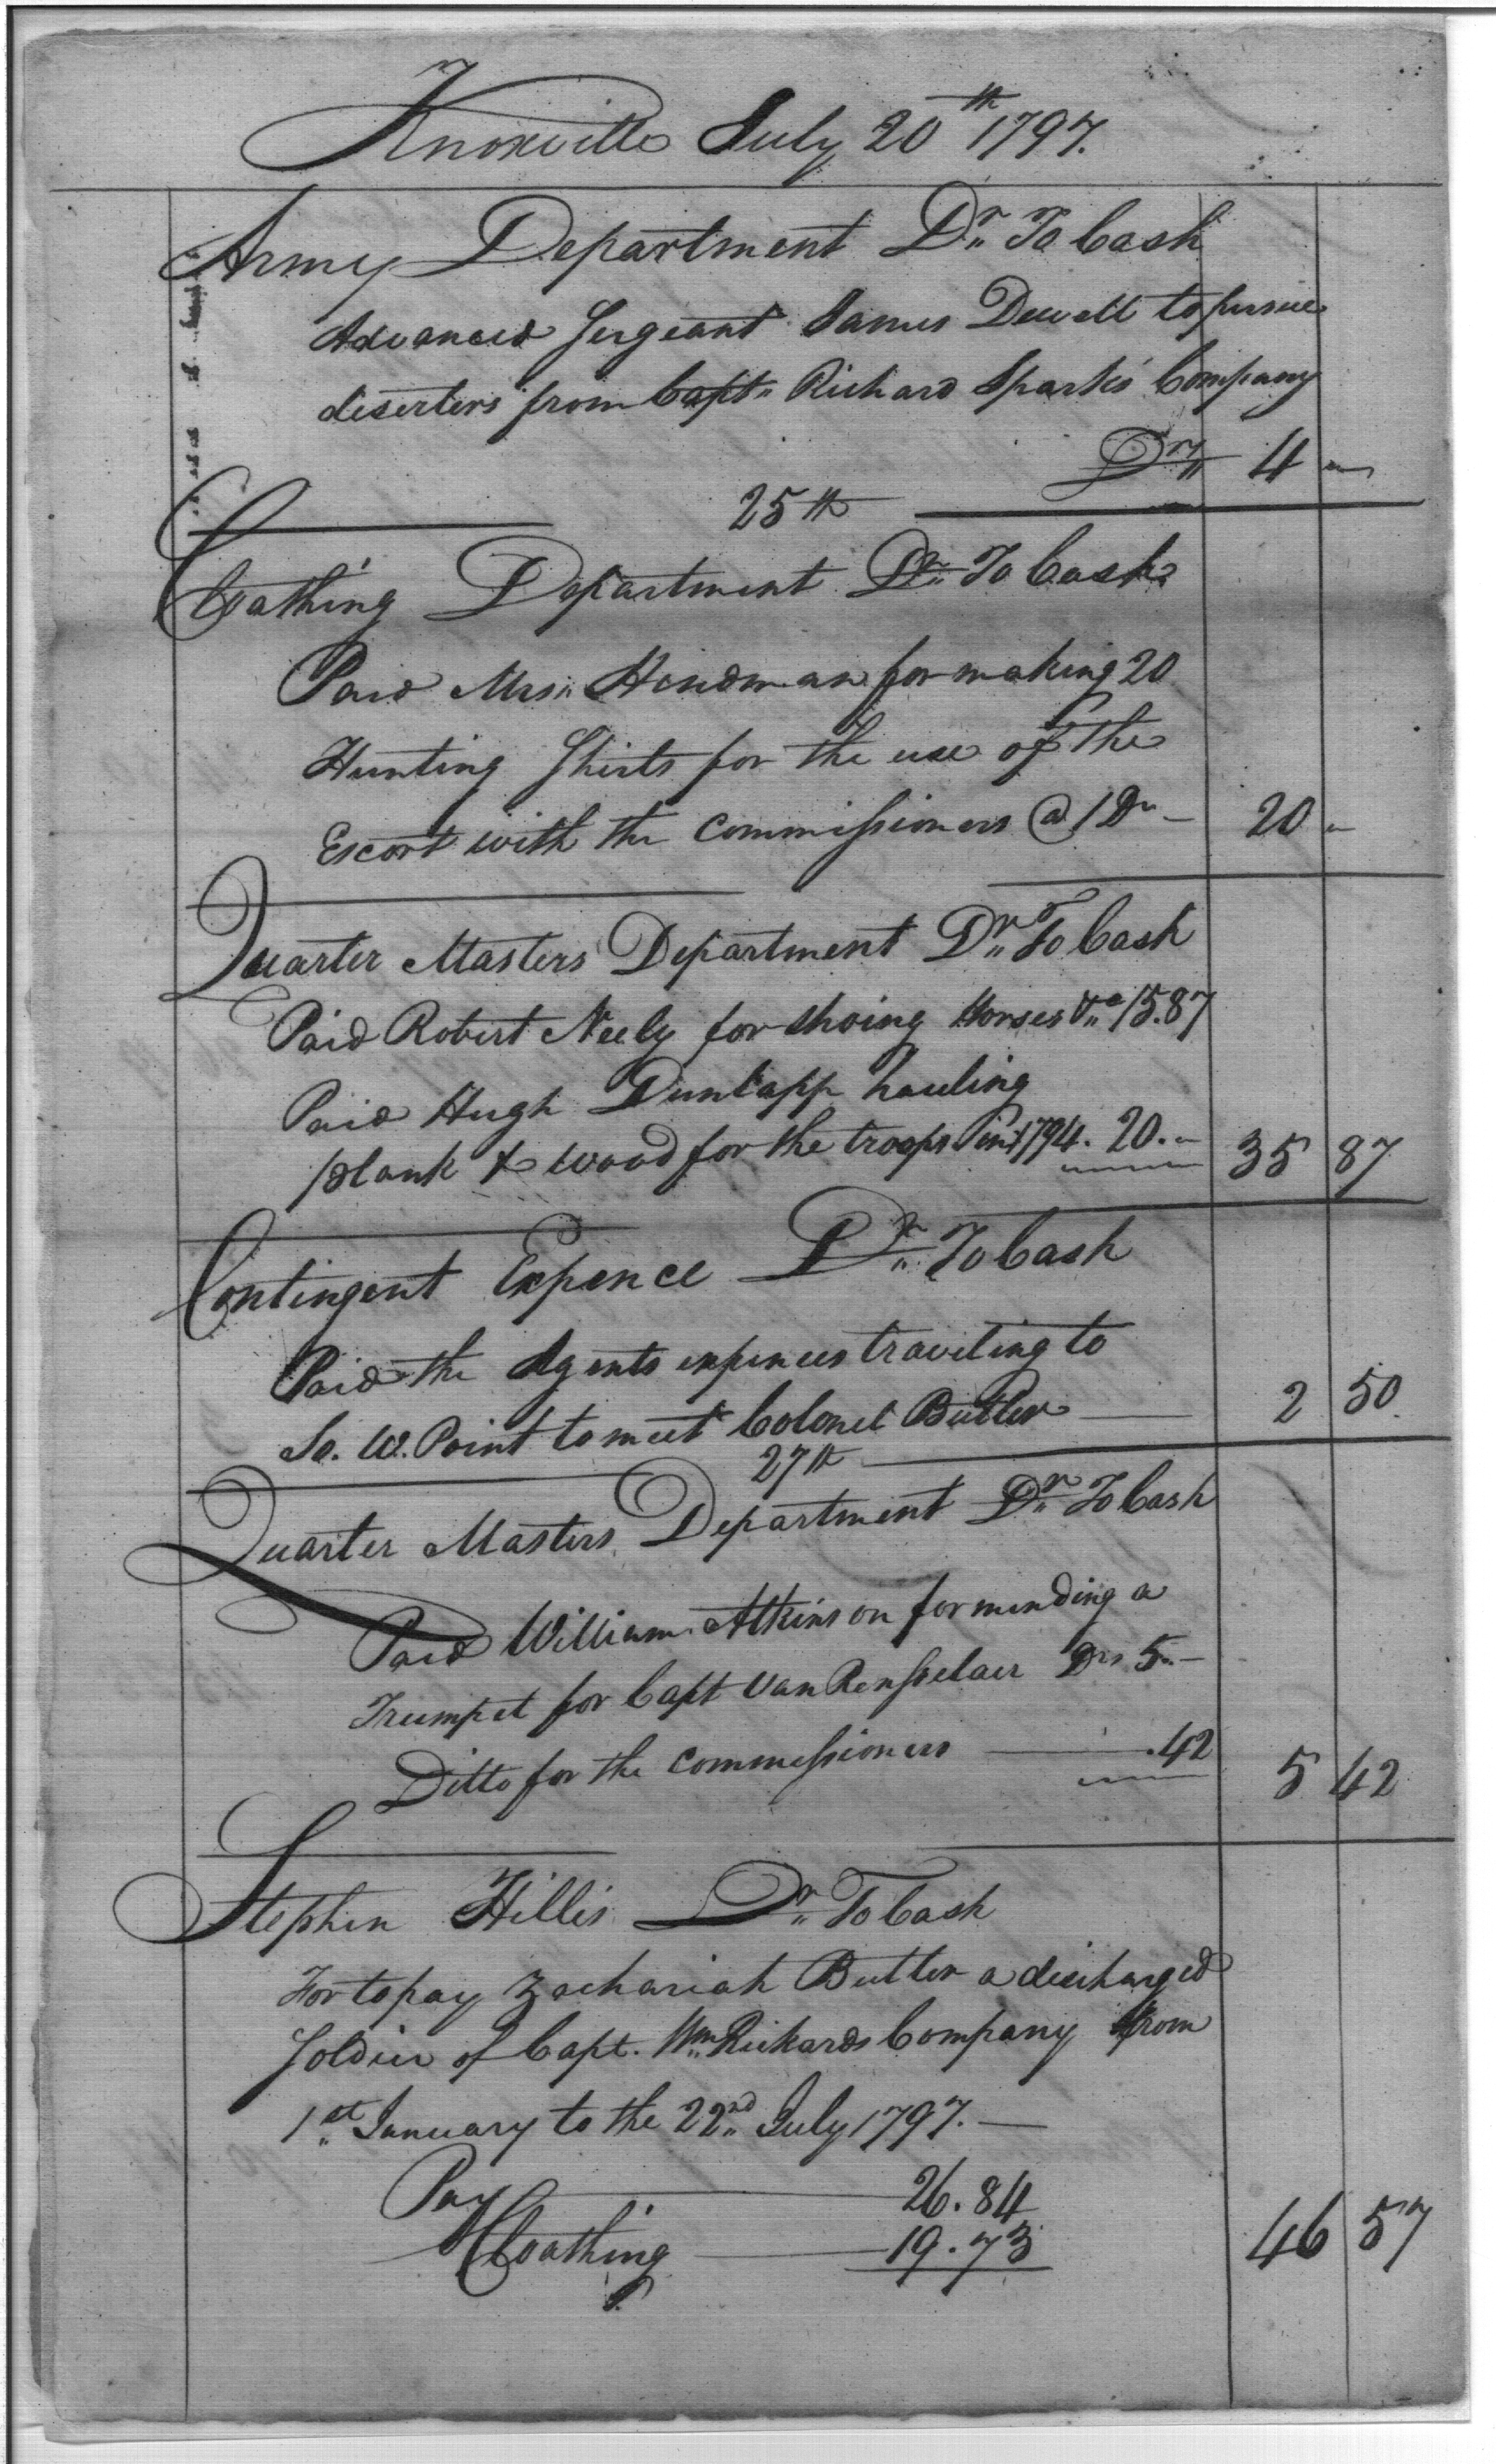 Knoxville July 20th 1797.
Army Department Dr. To Cash
Advanced Sergeant James Dewell to pursue
deserters from Capt. Richard Sparks' Company
Drs 4 –
25th
Cloathing Department Dr. To Cash
Paid Mrs. Hindman for making 20
Hunting Shirts for the use of the
Escort with the Commissioners @ 1 Dr – 20 –
Quarter Masters Department Dr. To Cash
Paid Robert Neely for shoing Horses &c 15.87
Paid Hugh Dunlapp hauling
plank & wood for the troops in 1794. 20. – 35 87
Contingent Expence Dr. To Cash
Paid the Agents expences traveling to
So. W. Point to meet Colonel Butler 2 50
27th
Quarter Masters Department Dr. To Cash
Paid William Atkinson for mending a
Trumpet for Capt Van Rensselaer Drs 5. –
Ditto for the Commissioners .42 5 42
Stephen Hillis Dr. To Cash
For to pay Zachariah Butler a discharged
Soldier of Capt. Wm. Rickards Company from
1st January to the 22nd July 1797. –
Pay 26.84
Cloathing 19.73 46 57